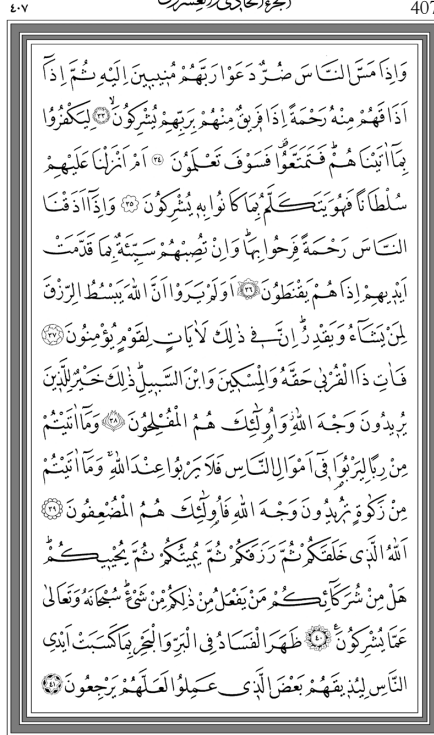 ٤٠٧ الجزء الحادي والعشرون 407
وَاِذَا مَسَّ النَّاسَ ضُرٌّ دَعَوْا رَبَّهُمْ مُنٖيبٖينَ اِلَيْهِ ثُمَّ اِذَٓا
اَذَاقَهُمْ مِنْهُ رَحْمَةً اِذَا فَرٖيقٌ مِنْهُمْ بِرَبِّهِمْ يُشْرِكُونَۙ ﴿٣٣﴾ لِيَكْفُرُوا
بِمَٓا اٰتَيْنَاهُمْۜ فَتَمَتَّعُوا۠ فَسَوْفَ تَعْلَمُونَ ﴿٣٤﴾ اَمْ اَنْزَلْنَا عَلَيْهِمْ
سُلْطَانًا فَهُوَ يَتَكَلَّمُ بِمَا كَانُوا بِهٖ يُشْرِكُونَ ﴿٣٥﴾ وَاِذَٓا اَذَقْنَا
النَّاسَ رَحْمَةً فَرِحُوا بِهَاۜ وَاِنْ تُصِبْهُمْ سَيِّئَةٌ بِمَا قَدَّمَتْ
اَيْدٖيهِمْ اِذَا هُمْ يَقْنَطُونَ ﴿٣٦﴾ اَوَلَمْ يَرَوْا اَنَّ اللّٰهَ يَبْسُطُ الرِّزْقَ
لِمَنْ يَشَٓاءُ وَيَقْدِرُۜ اِنَّ فٖي ذٰلِكَ لَاٰيَاتٍ لِقَوْمٍ يُؤْمِنُونَ ﴿٣٧﴾
فَاٰتِ ذَا الْقُرْبٰى حَقَّهُ وَالْمِسْكٖينَ وَابْنَ السَّبٖيلِۜ ذٰلِكَ خَيْرٌ لِلَّذٖينَ
يُرٖيدُونَ وَجْهَ اللّٰهِۘ وَاُو۬لٰٓئِكَ هُمُ الْمُفْلِحُونَ ﴿٣٨﴾ وَمَٓا اٰتَيْتُمْ
مِنْ رِبًا لِيَرْبُوَا۬ فٖٓي اَمْوَالِ النَّاسِ فَلَا يَرْبُوا عِنْدَ اللّٰهِۚ وَمَٓا اٰتَيْتُمْ
مِنْ زَكٰوةٍ تُرٖيدُونَ وَجْهَ اللّٰهِ فَاُو۬لٰٓئِكَ هُمُ الْمُضْعِفُونَ ﴿٣٩﴾
اَللّٰهُ الَّذٖي خَلَقَكُمْ ثُمَّ رَزَقَكُمْ ثُمَّ يُمٖيتُكُمْ ثُمَّ يُحْيٖيكُمْۜ
هَلْ مِنْ شُرَكَٓائِكُمْ مَنْ يَفْعَلُ مِنْ ذٰلِكُمْ مِنْ شَيْءٍۜ سُبْحَانَهُ وَتَعَالٰى
عَمَّا يُشْرِكُونَ۟ ﴿٤٠﴾ ظَهَرَ الْفَسَادُ فِي الْبَرِّ وَالْبَحْرِ بِمَا كَسَبَتْ اَيْدِي
النَّاسِ لِيُذٖيقَهُمْ بَعْضَ الَّذٖي عَمِلُوا لَعَلَّهُمْ يَرْجِعُونَ ﴿٤١﴾